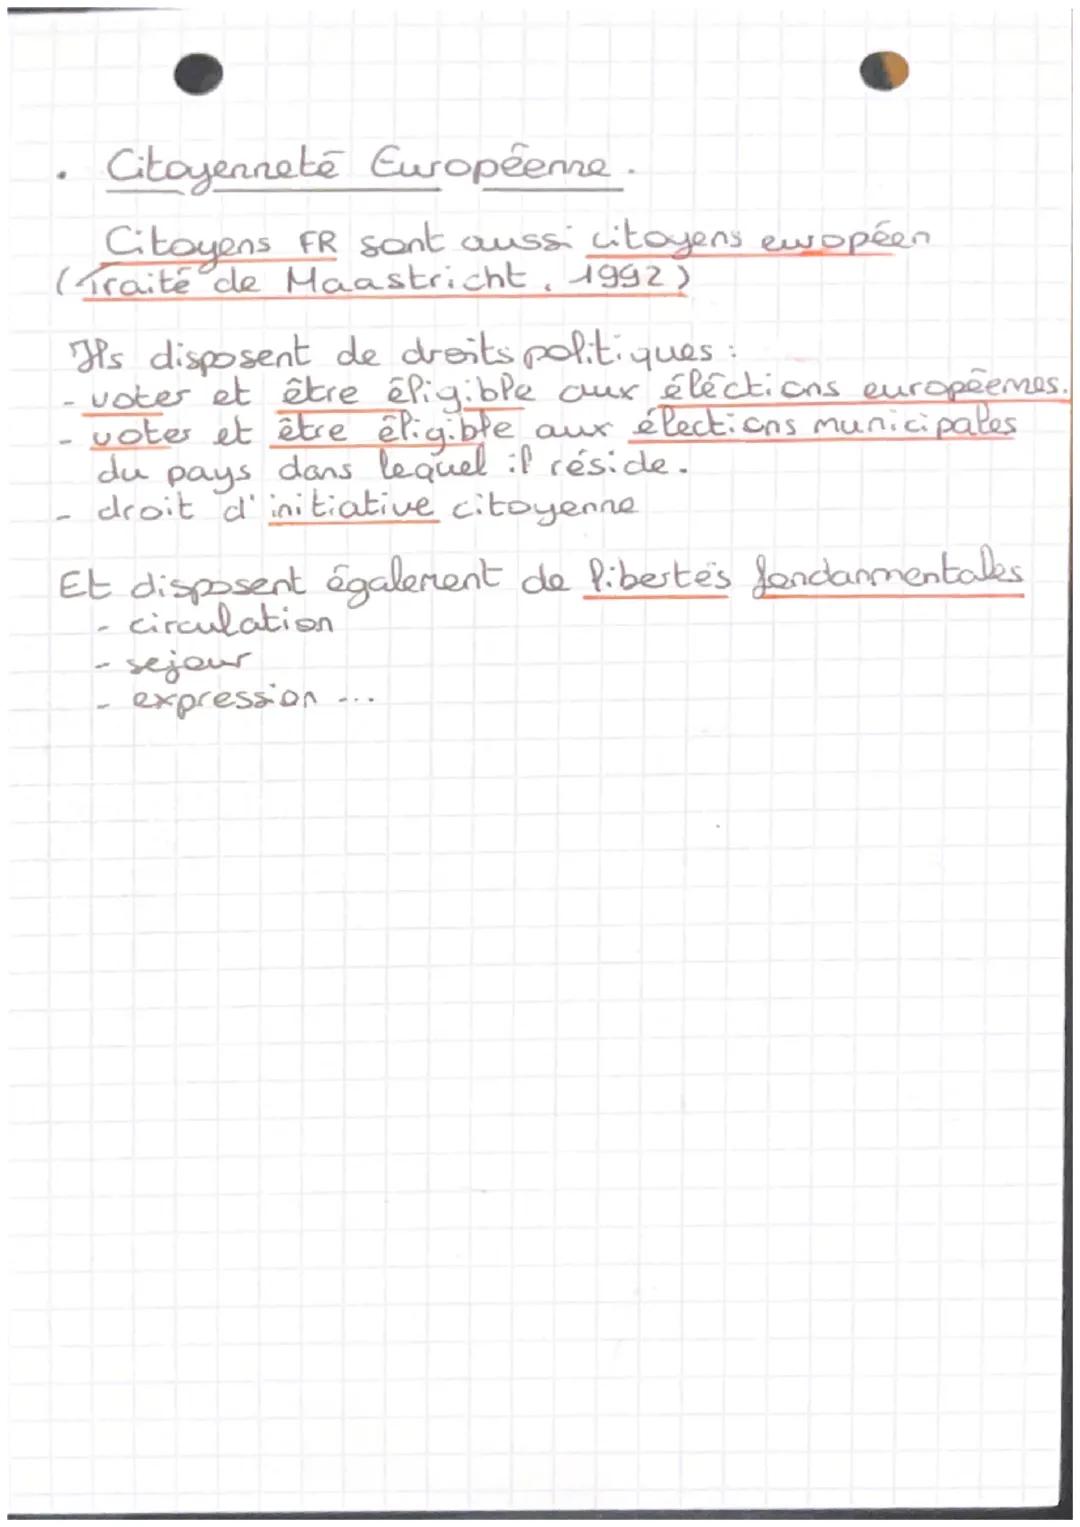 . Citoyenneté Européenne.
Citoyens FR sont aussi citoyens européen
(Traité de Maastricht, 1992)
Ils disposent de droits politiques :
- voter et être éligible aux éléctions européennes.
- voter et être éligible aux élections municipales
du pays dans lequel il réside.
- droit d'initiative citoyenne
Et disposent également de libertés fondanmentales
- circulation
- sejour
- expression ...